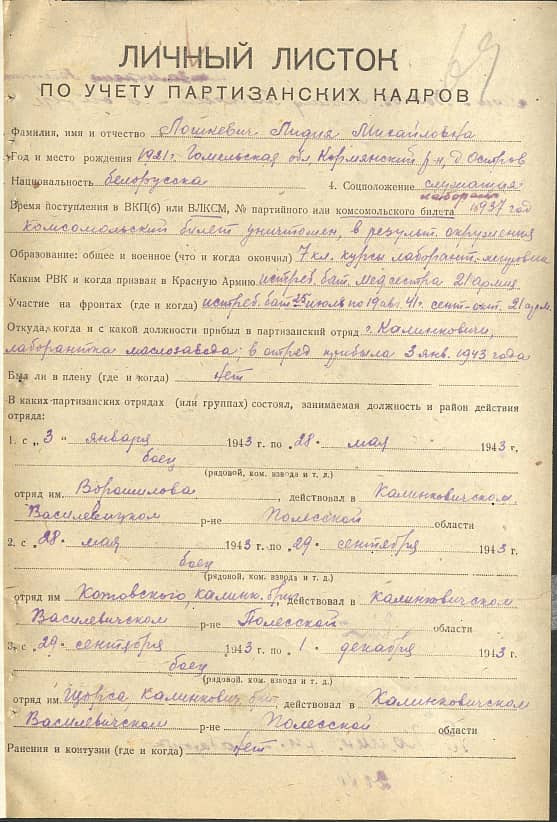 69
ЛИЧНЫЙ ЛИСТОК
ПО УЧЕТУ ПАРТИЗАНСКИХ КАДРОВ
Фамилия, имя и отчество Лошкевич Лидия Михайловна
Год и место рождения 1921 г. Гомельская обл, Кормянский р-н, д. Остров
Национальность белорусска 4. Соцположение служащая
лаборант
Время поступления в ВКП(б) или ВЛКСМ, № партийного или комсомольского билета 1937 год
Комсомольский билет уничтожен, в результ. окружения
Образование: общее и военное (что и когда окончил) 7 кл. курсы лаборант-
Каким РВК и когда призван в Красную Армию истреб. бат. медсестра 21 армия
Участие на фронтах (где и когда) истреб. бат. 25 июль по 19 авг. 41 г. сент-окт. 21 арм.
Откуда, когда и с какой должности прибыл в партизанский отряд г. Калинковичи,
лаборантка маслозавода: в отряд прибыла 3 янв. 1943 года
Был ли в плену (где и когда) нет
В каких партизанских отрядах (или группах) состоял, занимаемая должность и район действия
отряда:
1. с „3" января 1943 г. по „28" мая 1943 г,
боец
(рядовой, ком. взвода и т. д.)
отряд им. Ворошилова, действовал в Калинковичском,
Василевицком р-не Полесской области
2. с „28" мая 1943 г. по „29" сентября 1943 г.
боец
(рядовой, ком. взвода и т. д.)
отряд им. Котовского калинк. бриг действовал в Калинковичском
Василевичском р-не Полесской области
3. с „29" сентября 1943 г. по „1" декабря 1943 г.
боец
(рядовой, ком. взвода и т. д.)
отряд им Щорса, Калинкович. бриг, действовал в Калинковичском
Василевичском р-не Полесской области
Ранения и контузии (где и когда) нет